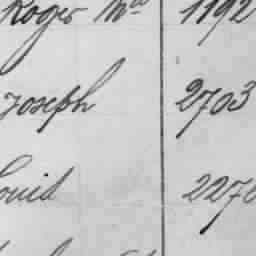 Roger Ma 1192
Joseph 2703
Louis 2270